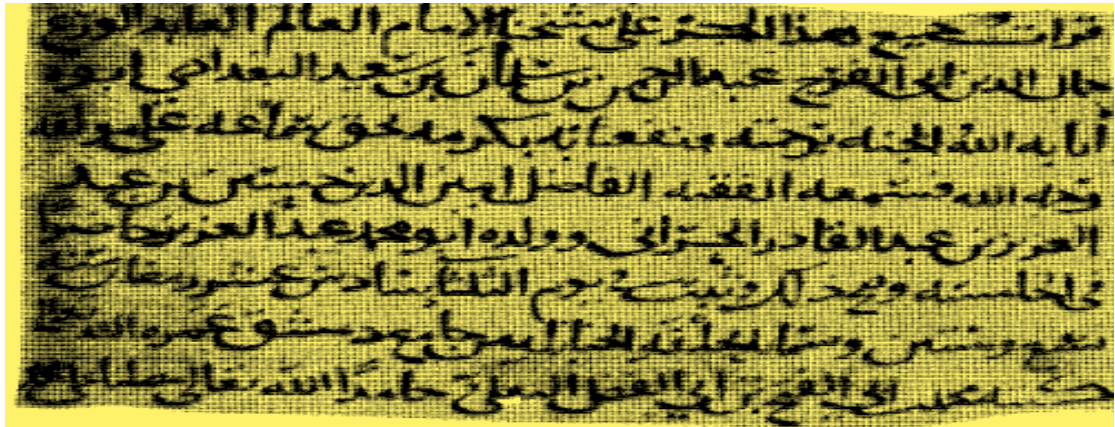 قرات جميع هذا الجزء على شيخنا الامام العالم العابد الورع
جمال الدين ابى الفرج عبد الرحمن بن سلمان بن سعيد البغدادى
اثابه الله الجنه برحمته ومنفعنا به بكرمه بحق سماعه على
رحمه الله فسمعه الفقيه الفاضل امين الدين بن عبد
العزيز بن عبد القادر الحرانى وولده ابو محمد عبد العزيز حاضرا
فى الخامسه وصح ذلك وثبت يوم الثلثا سادس عشر رمضان
سبع وستين وستمايه بحلقه الحنابله بجامع دمشق عمره الله
محمد بن ابى الفتح بن ابى الفضل البعلى حامدا لله تعالى مصليا